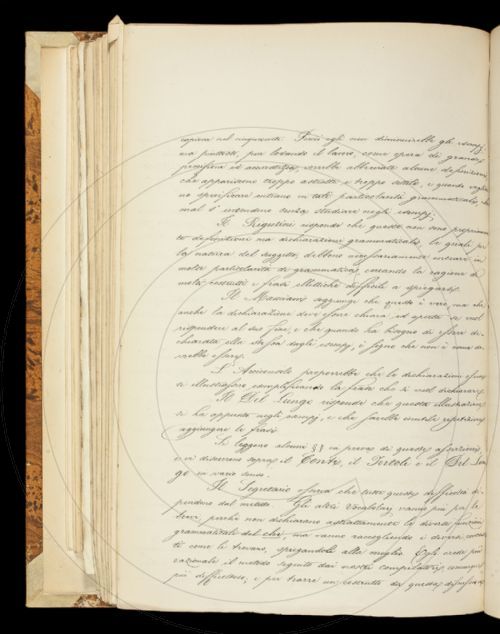 sapiena nel cinquecento. Però egli non diminuirebbe gli esempj,
ma piuttosto, pur lodando il lavoro, come opera di grande
pazienza ed accuratezza, vorrebbe abbreviate alcune definizioni
che appariscono troppo astratte e troppo sottili, e quando voglio-
no specificare entrano in tali particolarità grammaticali, che
mal s'intendono senza studiare negli esempj.
Il Rigutini risponde che queste non sono propriamen-
te definizioni ma dichiarazioni grammaticali, le quali per
la natura del soggetto debbono necessariamente entrare in
molte particolarità di grammatica, cercando la ragione di
molti costrutti e frasi ellittiche difficili a spiegarsi.
Il Massiani aggiunge che questo è vero, ma che
anche la dichiarazione deve essere chiara ed aperta se vuol
rispondere al suo fine, e che quando ha bisogno di essere di-
chiarata ella stessa dagli esempj, è segno che non è come do-
vrebbe essere.
L'Arcivescovo proporrebbe che le dichiarazioni esse
si illustrassero complificando la frase che si vuol dichiarare.
Il Del Lungo risponde che questa illustrazione
si ha appunto negli esempj, e che sarebbe inutile ripetizione
aggiungere le frasi.
Si leggono alcuni §§ in prova di queste asserzioni,
e vi discorrono sopra il Conti, il Tortoli e il Del Lun-
go in vario senso.
Il Segretario osserva che tutte queste difficoltà di-
pendono dal metodo. Gli altri Vocabolarj vanno più per le
brevi, perchè non dichiarano astrattamente le diverse funzioni
grammaticali del che, ma vanno raccogliendo i diversi costrut-
ti come li trovano, spiegandoli alla meglio. Egli crede più
razionale il metodo seguito dai nostri compilatori, comunque
più difficoltoso, e per trarre un costrutto da queste discussioni